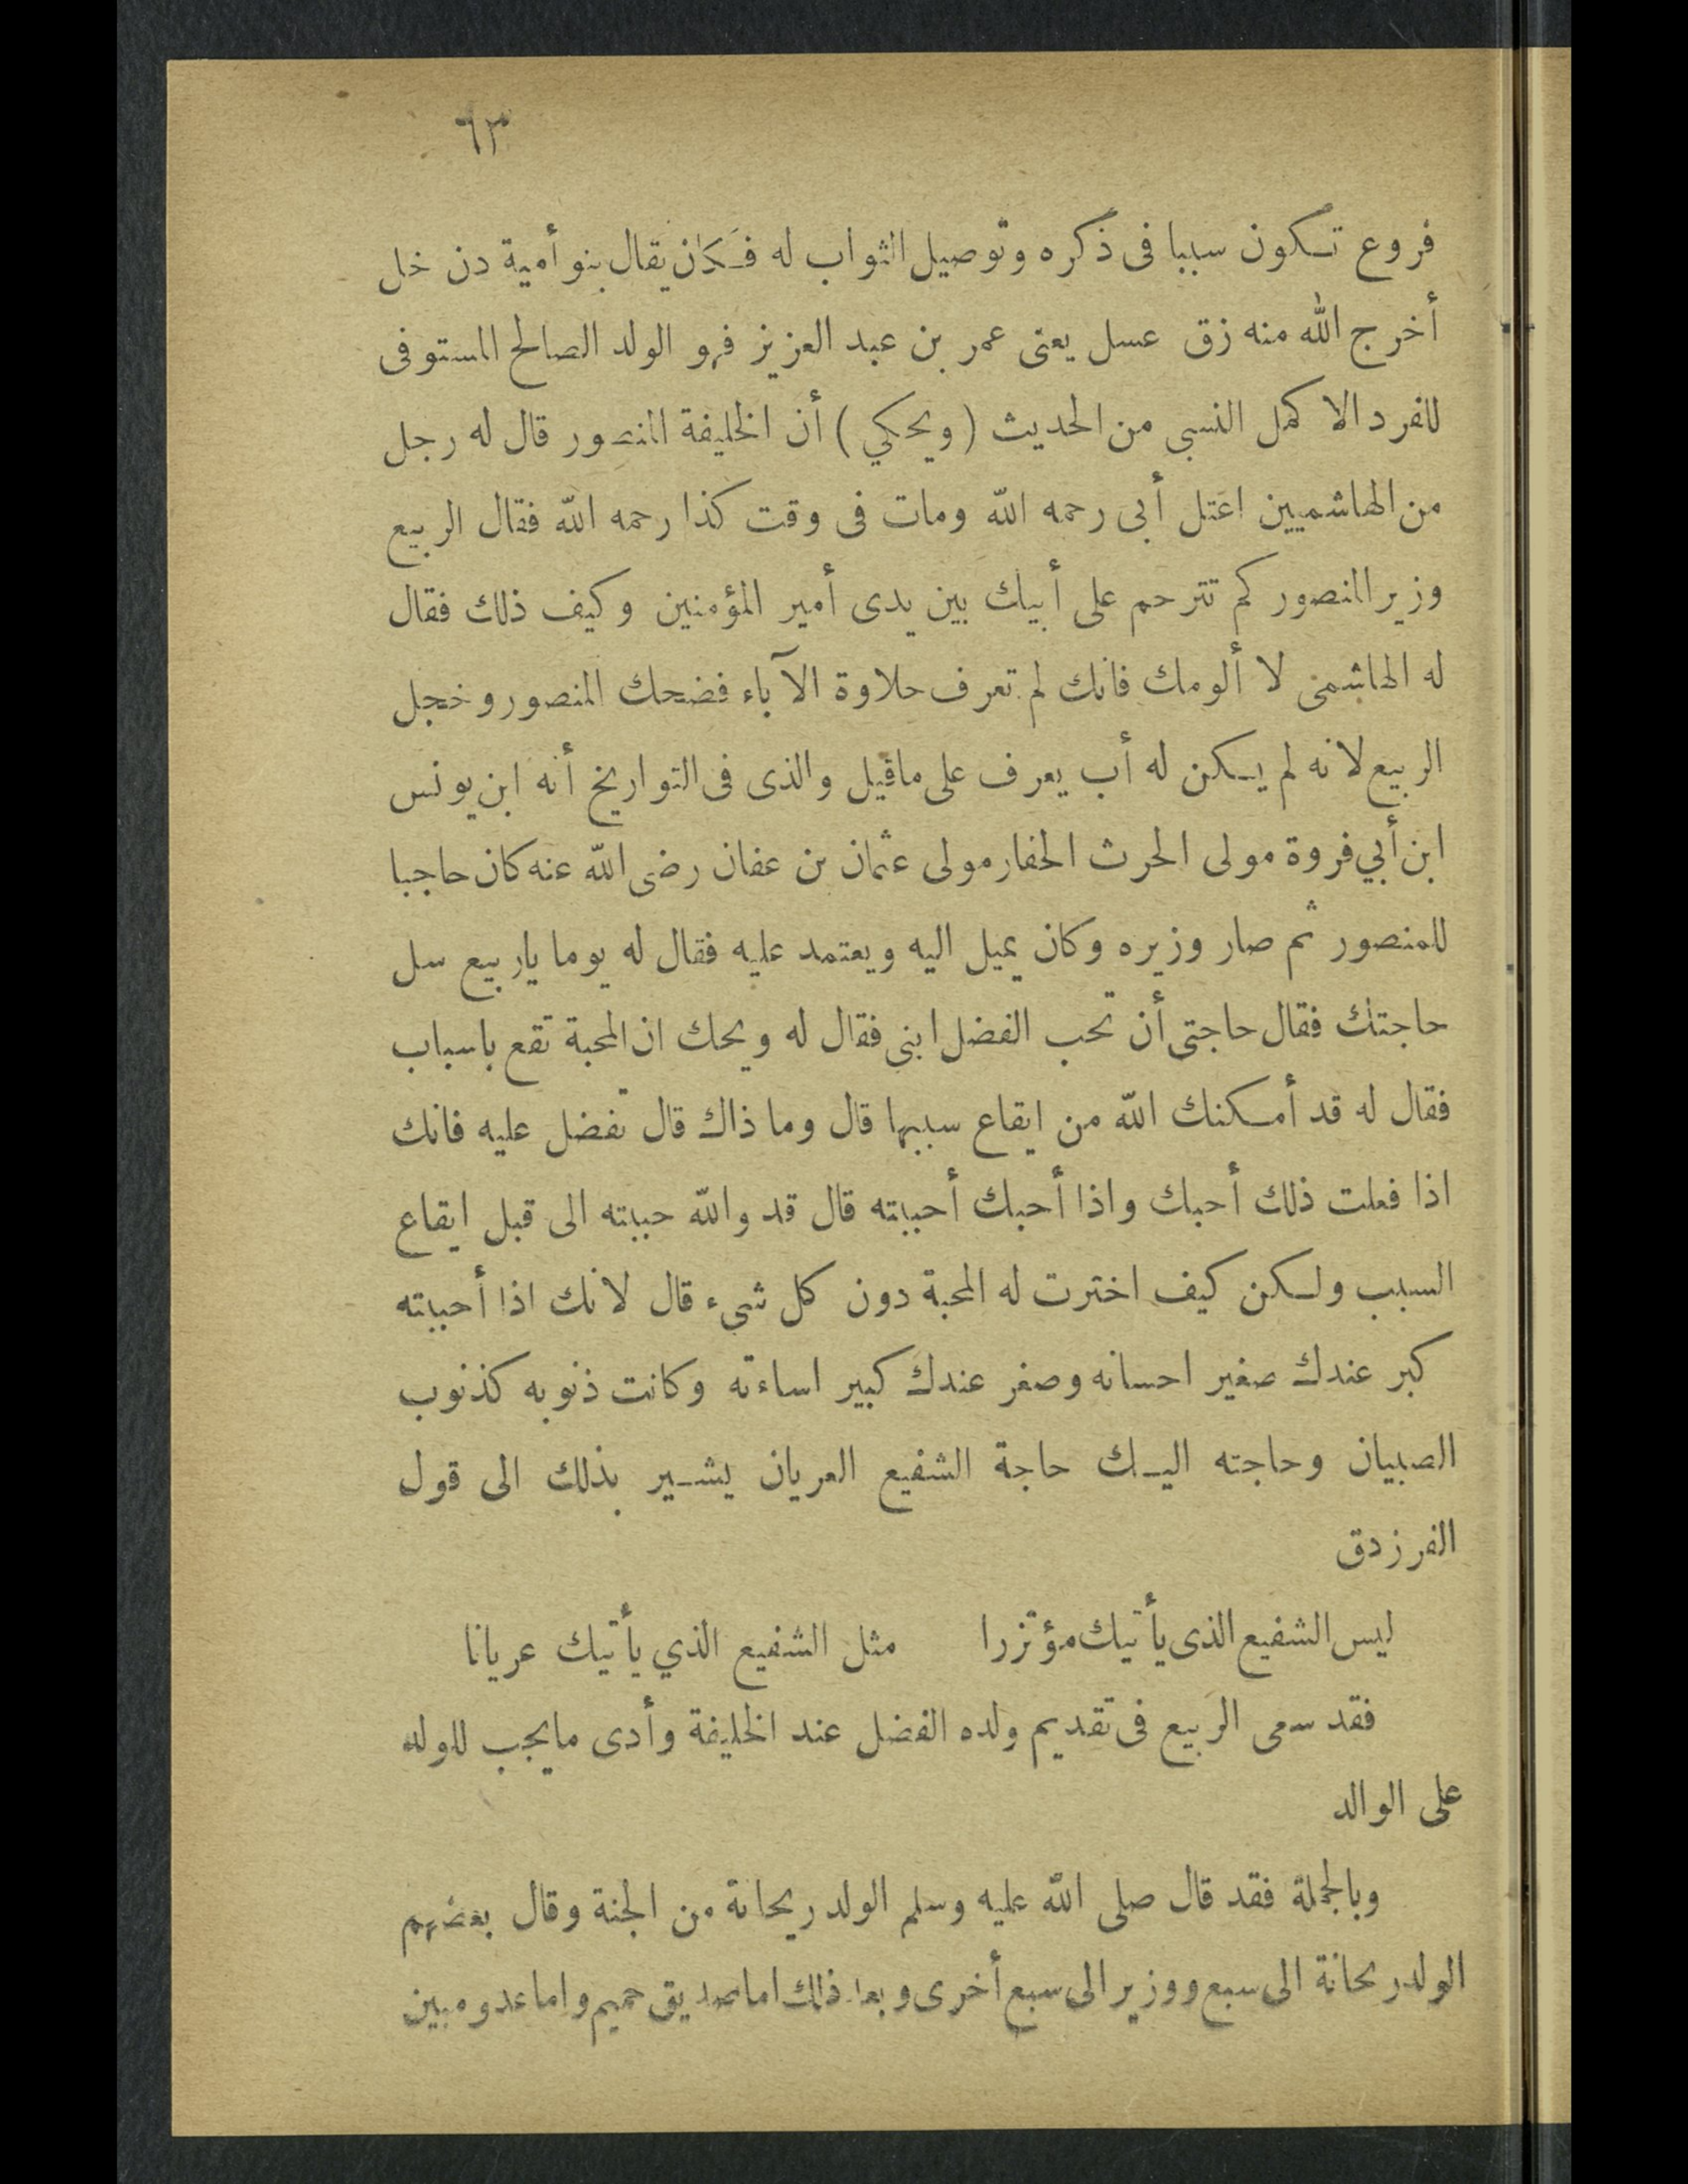 ٦٣
فروع تكون سببا فى ذكره وتوصيل الثواب له فكان يقال بنو أمية دن خل
أخرج الله منه زق عسل يعنى عمر بن عبد العزيز فهو الولد الصالح المستوفى
للفرد الاكمل النسبى من الحديث (ويحكي) أن الخليفة المنصور قال له رجل
من الهاشميين اعتل أبى رحمه الله ومات فى وقت كذا رحمه الله فقال الربيع
وزير المنصور كم تترحم على أبيك بين يدى أمير المؤمنين وكيف ذلك فقال
له الهاشمى لا ألومك فانك لم تعرف حلاوة الآباء فضحك المنصور وخجل
الربيع لانه لم يكن له أب يعرف على ماقيل والذى فى التواريخ أنه ابن يونس
ابن أبي فروة مولى الحرث الحفار مولى عثمان بن عفان رضى الله عنه كان حاجبا
للمنصور ثم صار وزيره وكان يميل اليه ويعتمد عليه فقال له يوما ياربيع سل
حاجتك فقال حاجتى أن تحب الفضل ابنى فقال له ويحك ان المحبة تقع باسباب
فقال له قد أمكنك الله من ايقاع سببها قال وما ذاك قال تفضل عليه فانك
اذا فعلت ذلك أحبك واذا أحبك أحببته قال قد والله حببته الى قبل ايقاع
السبب ولكن كيف اخترت له المحبة دون كل شىء قال لانك اذا أحببته
كبر عندك صغير احسانه وصغر عندك كبير اساءته وكانت ذنوبه كذنوب
الصبيان وحاجته اليك حاجة الشفيع العريان يشير بذلك الى قول
الفرزدق
ليس الشفيع الذى يأتيك مؤتزرا مثل الشفيع الذي يأتيك عريانا
فقد سعى الربيع فى تقديم ولده الفضل عند الخليفة وأدى مايجب للولد
على الوالد
وبالجملة فقد قال صلى الله عليه وسلم الولد ريحانة من الجنة وقال بعضهم
الولد ريحانة الى سبع ووزير الى سبع أخرى وبعد ذلك اما صديق حميم واما عدو مبين